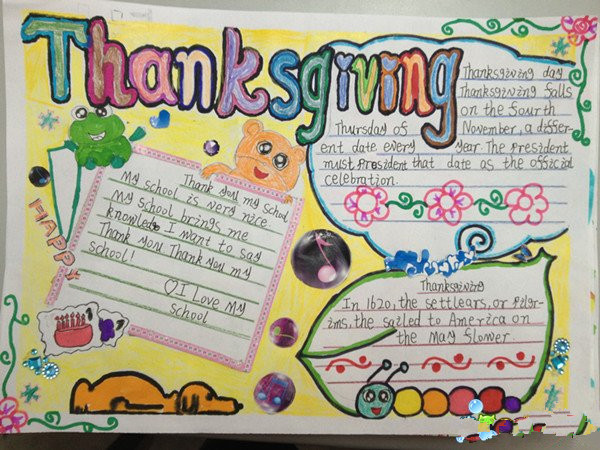 Thanksgiving
Thanksgiving day
Thanksgiving falls
on the fourth
Thursday of November, a differ-
ent date every year. The president
must president that date as the official
celebration.
Thank you my school
My school is very nice.
My school brings me
knowlets I want to say
Thank you Thank you my
school!
I Love My
school
HAPPY
Thanksgiving
In 1620, the settlears, or pilgr-
ims, the sailed to America on
the May flower